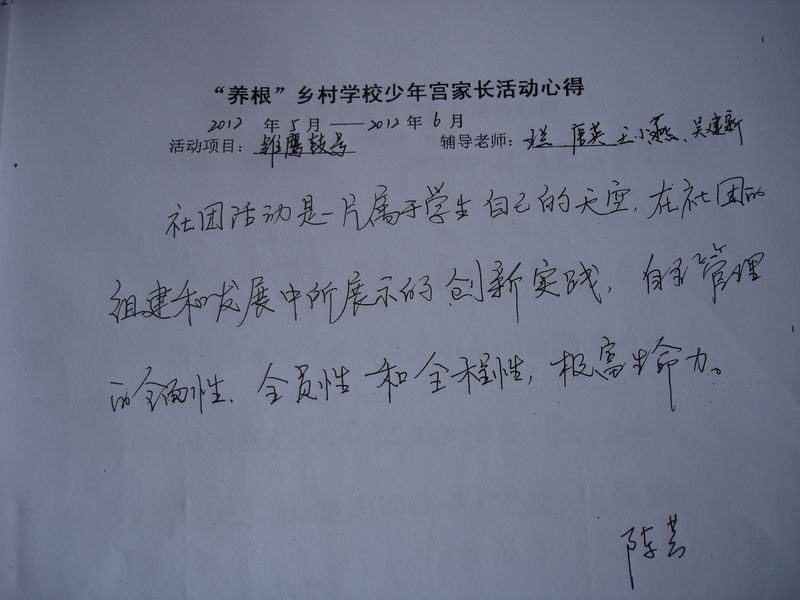 “养根”乡村学校少年宫家长活动心得
2012 年 5 月 —— 2012 年 6 月
活动项目：雏鹰鼓号 辅导老师： 唐英 王小燕、吴建新
社团活动是一片属于学生自己的天空，在社团的
组建和发展中所展示的创新实践，自我管理
的全面性、全员性和全程性，极富生命力。
陈芸